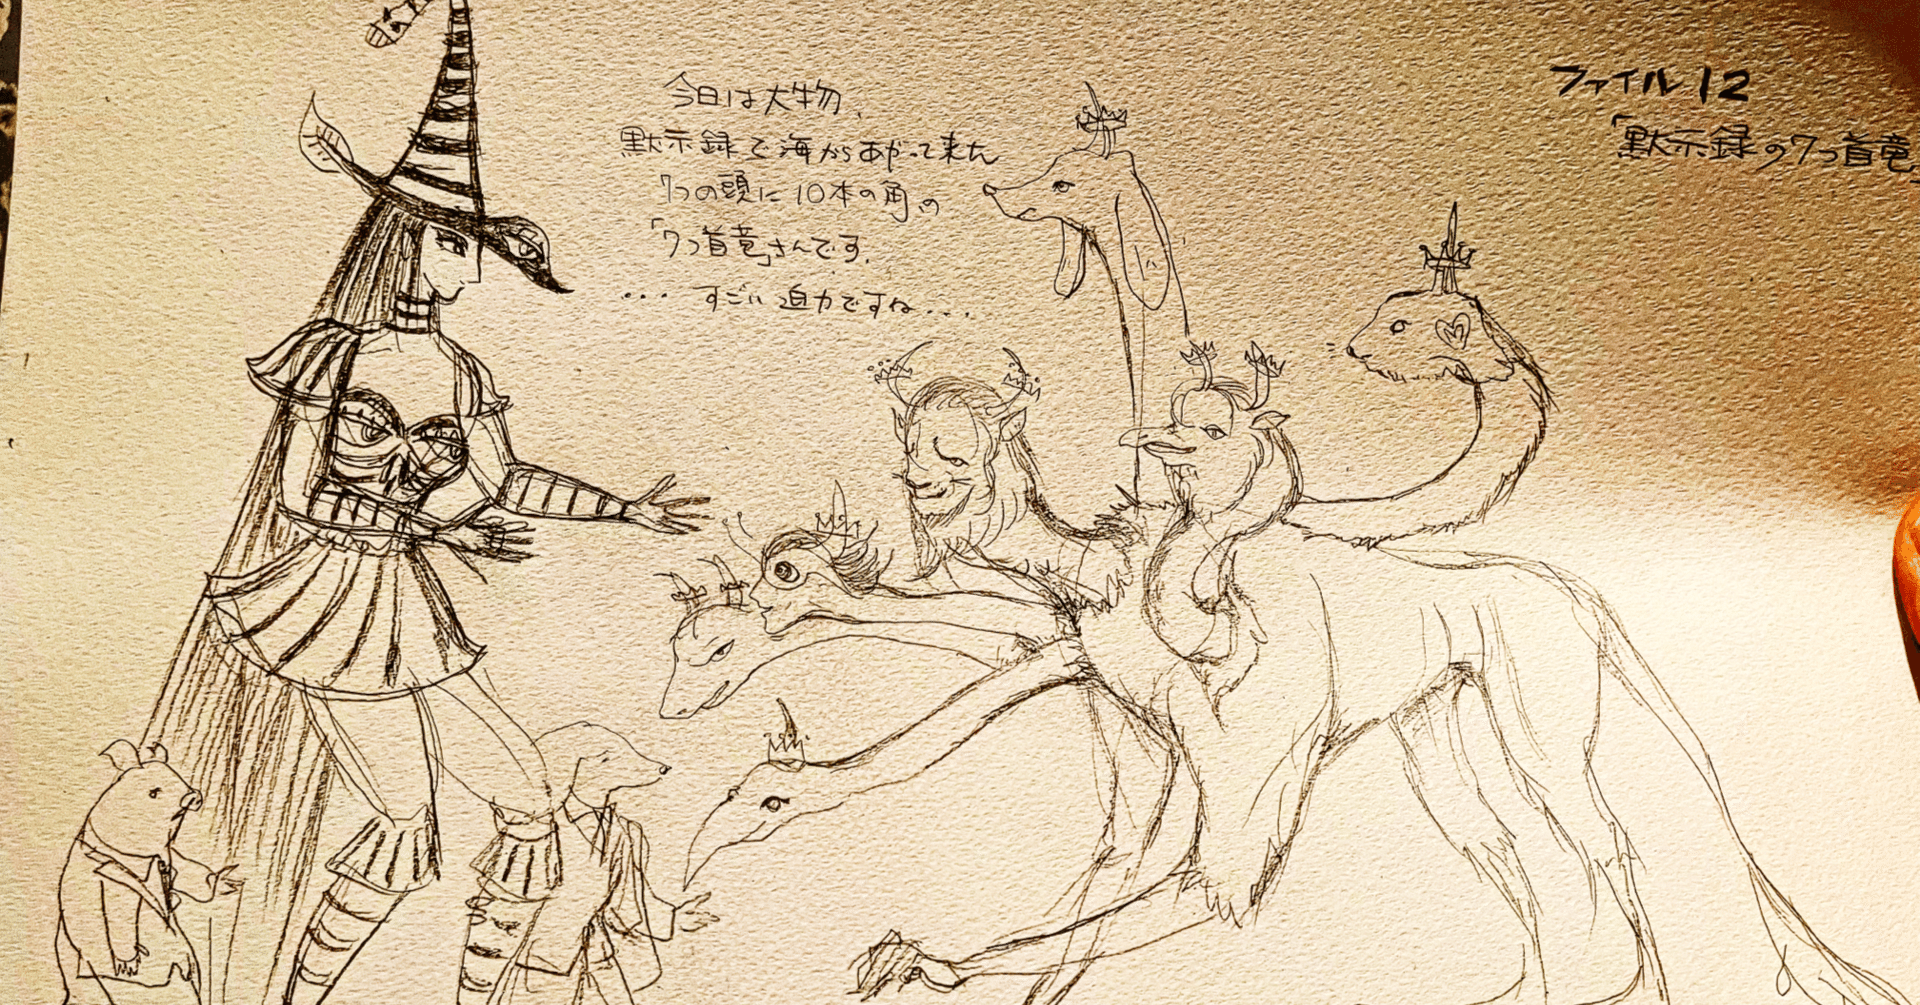 今日は大物、
黙示録で海からあがって来た
7つの頭に10本の角の
「7つ首竜」さんです。
・・・すごい迫力ですね・・・
ファイル12
「黙示録の7つ首竜」